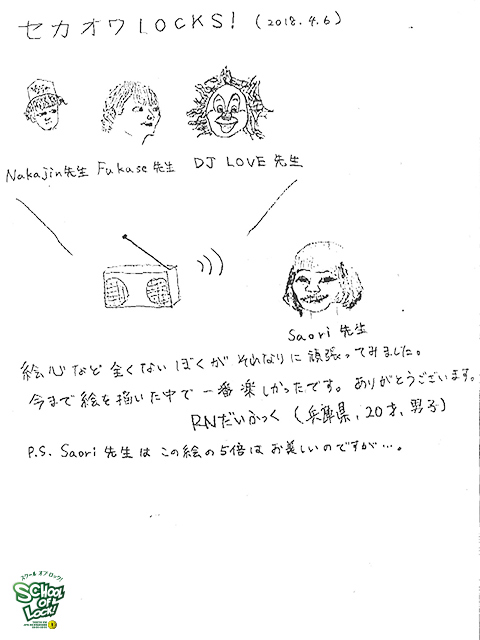 セカオワLOCKS! (2018.4.6)
Nakajin先生 Fukase先生 DJ LOVE 先生
Saori 先生
絵心など全くないぼくがそれなりに頑張ってみました。
今まで絵を描いた中で一番楽しかったです。ありがとうございます。
RNだいふっく (兵庫県, 20才, 男子)
P.S. Saori 先生はこの絵の5倍はお美しいのですが…。
スクール オブ ロック!
SCHOOL
OF
LOCK!